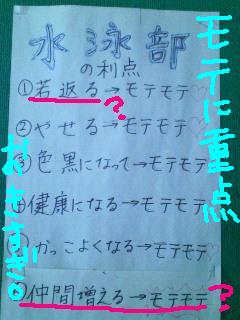 水泳部
の利点
①若返る→モテモテ♡
?
②やせる→モテモテ♡
③色黒になって→モテモテ
④健康になる→モテモテ
かっこよくなる→モテモテ♡
⑥仲間増える→モテモテ
?
モテに重点
おきすぎだろ